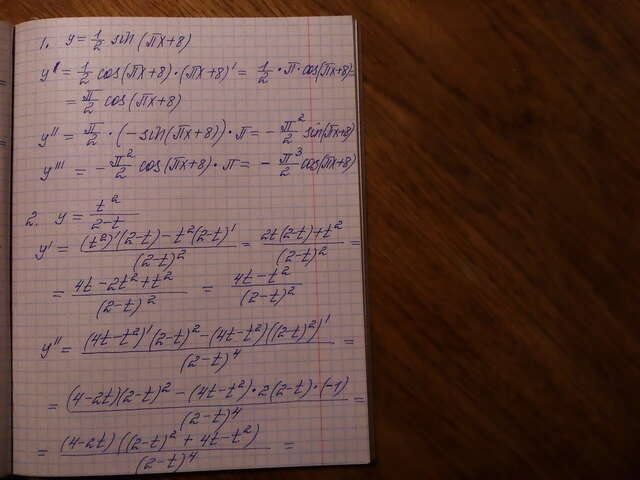 1. y = 1/2 sin (πx+8)
y' = 1/2 cos(πx+8)·(πx+8)' = 1/2 · π · cos(πx+8) =
= π/2 cos(πx+8)
y'' = π/2 · (-sin(πx+8)) · π = - π²/2 sin(πx+8)
y''' = - π²/2 cos(πx+8) · π = - π³/2 cos(πx+8)
2. y = t²/(2-t)
y' = ((t²)'(2-t) - t²(2-t)')/(2-t)² = (2t(2-t)+t²)/(2-t)² =
= (4t-2t²+t²)/(2-t)² = (4t-t²)/(2-t)²
y'' = ((4t-t²)'(2-t)² - (4t-t²)((2-t)²)')/(2-t)⁴ =
= ((4-2t)(2-t)² - (4t-t²)·2(2-t)·(-1))/(2-t)⁴ =
= (4-2t)((2-t)² + 4t-t²)/(2-t)⁴ =